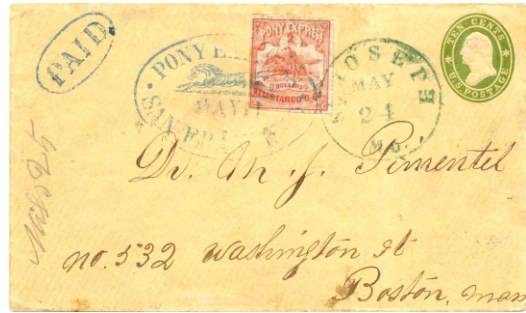 PAID
PONY E
MAY
SAN FRA
PONY EXPRESS
2 DOLLARS
WELLS FARGO
ST JOSEPH
MAY
24
MO.
TEN CENTS
U.S. POSTAGE
Dr. M. J. Pimentel
no. 532 Washington st
Boston, mass